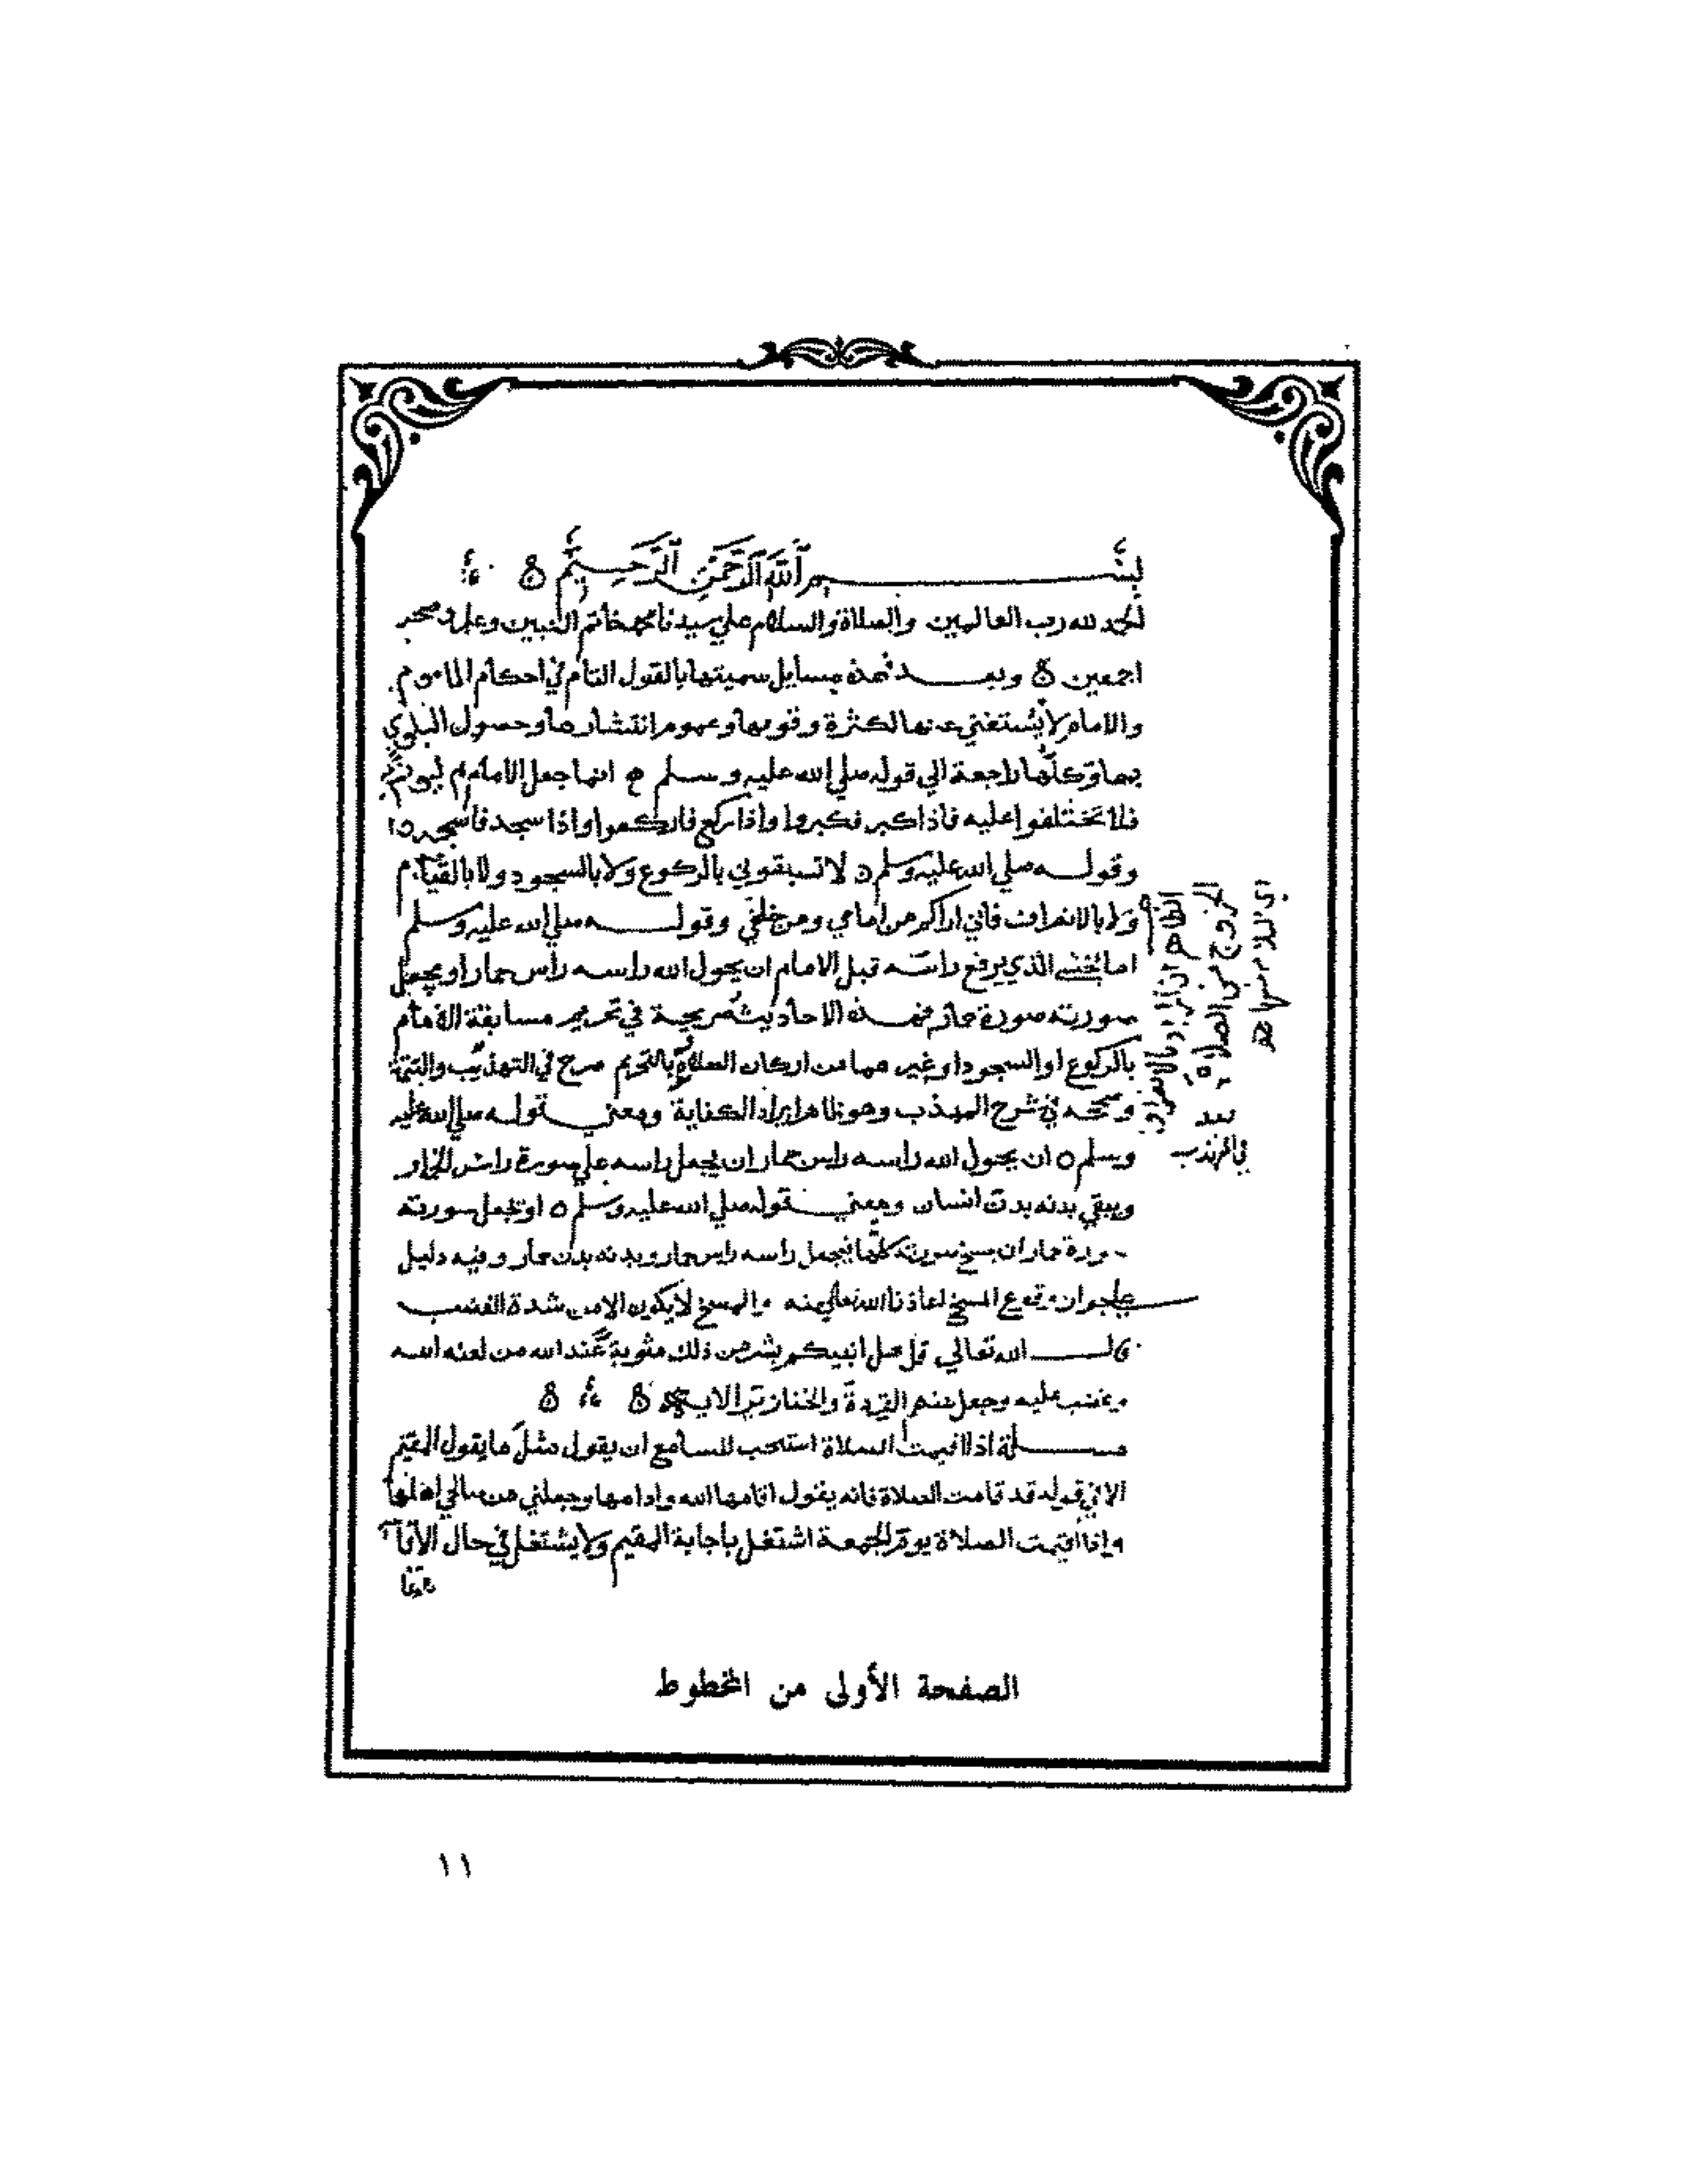 بسم الله الرحمن الرحيم
الحمد لله رب العالمين والصلاة والسلام علي سيدنا محمد خاتم النبيين وعلي صحبه
اجمعين وبعد فهذه مسايل سميتها بالقول التام في احكام الماموم
والامام لا يستغني عنها لكثرة وقوعها وعموم انتشارها وحصول البلوي
بها وكلها راجعة الي قوله صلي الله عليه وسلم انما جعل الامام ليوتم به
فلا تختلفوا عليه فاذا كبر فكبروا واذا ركع فاركعوا واذا سجد فاسجدوا
وقوله صلي الله عليه وسلم لا تسبقوني بالركوع ولا بالسجود ولا بالقيام
ولا بالانصراف فاني اراكم من امامي ومن خلفي وقوله صلي الله عليه وسلم
اما يخشي الذي يرفع راسه قبل الامام ان يحول الله راسه راس حمار او يجعل
صورته صورة حمار فهذه الاحاديث صريحة في تحريم مسابقة الامام
بالركوع او السجود او غيرهما من اركان الصلاة بالتحريم صرح في التهذيب والتتمة
وصححه في شرح المهذب وهو ظاهر ايراد الكفاية ومعني قوله صلي الله عليه
وسلم ان يحول الله راسه راس حمار ان يجعل راسه علي صورة راس الحمار
ويبقي بدنه بدن انسان ومعني قوله صلي الله عليه وسلم او يجعل صورته
صورة حمار ان يمسخ صورته كلها فيجعل راسه راس حمار وبدنه بدن حمار وفيه دليل
علي جواز وقوع المسخ اعاذنا الله تعالي منه والمسخ لا يكون الا من شدة الغضب
قال الله تعالي قل هل انبيكم بشر من ذلك مثوبة عند الله من لعنه الله
وغضب عليه وجعل منهم القردة والخنازير الاية
مسلة اذا اقيمت الصلاة استحب للسامع ان يقول مثل ما يقول المقيم
الا في قوله قد قامت الصلاة فانه يقول اقامها الله وادامها وجعلني من صالحي اهلها
واذا اقيمت الصلاة يوم الجمعة اشتغل باجابة المقيم ولا يشتغل في حال الاقا
الظاهر ان المراد بالانصراف
الخروج من الصلاة
الصفحة الأولى من المخطوط
١١